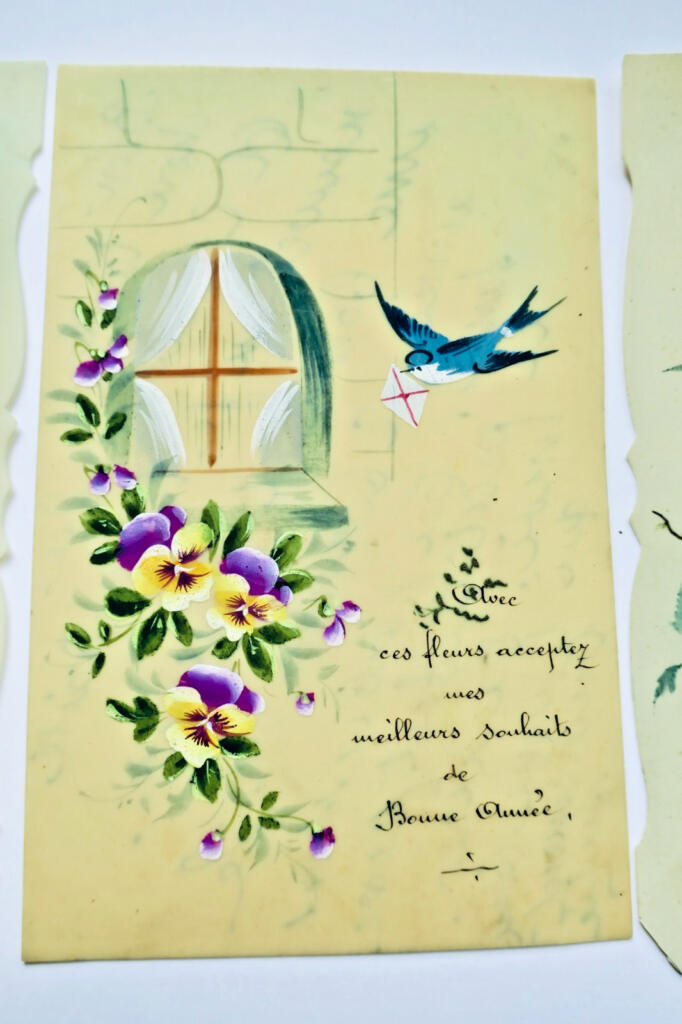 Avec
ces fleurs acceptez
mes
meilleurs souhaits
de
Bonne Année,